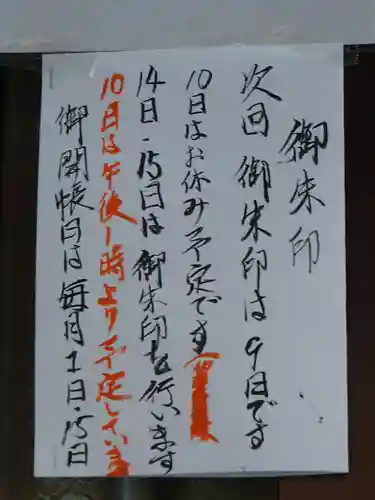 御朱印
次回御朱印は9日です
10日はお休み予定です
14日・15日は御朱印を行います
10日は午後1時より予定しています
御開帳日は毎月1日・15日